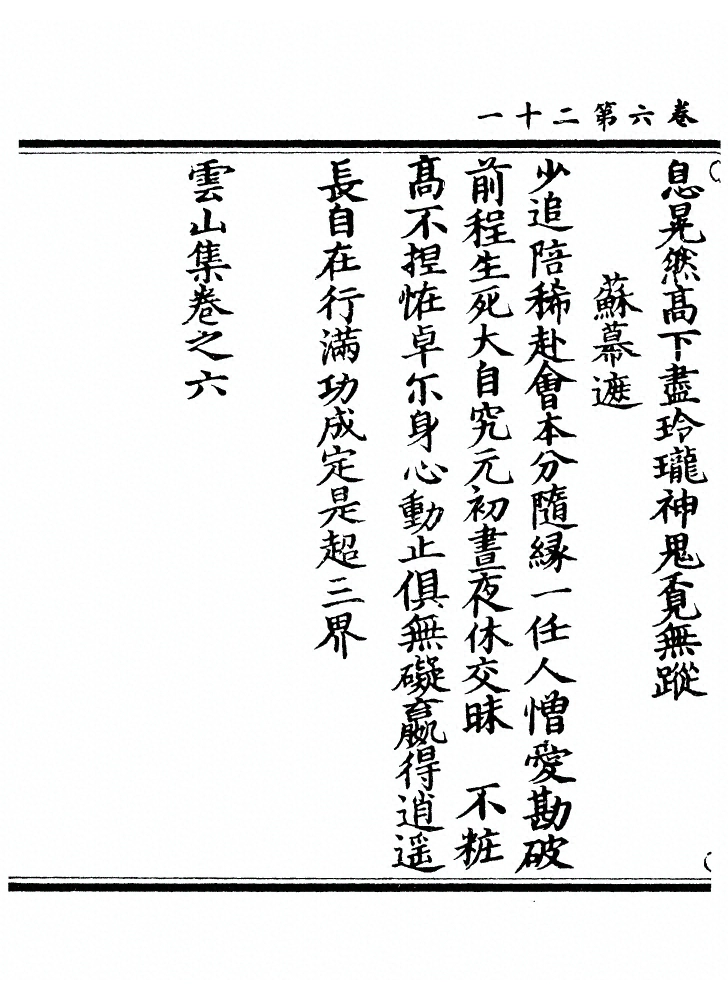 卷六第二十一
息晃然高下盡玲瓏神鬼覔無蹤
蘇幕遮
少追陪稀赴會本分隨緣一任人憎愛勘破
前程生死大自究元初晝夜休交昧　不粧
高不捏恠卓尓身心動止俱無礙贏得逍遥
長自在行滿功成定是超三界
雲山集卷之六